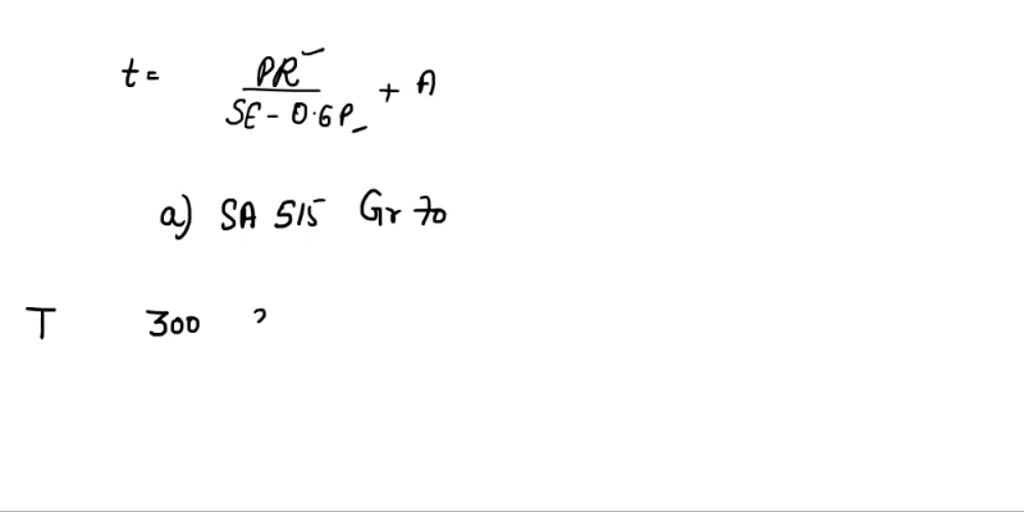 t = PR / SE - 0.6P + A
a) SA 515 Gr 70
T 300 2